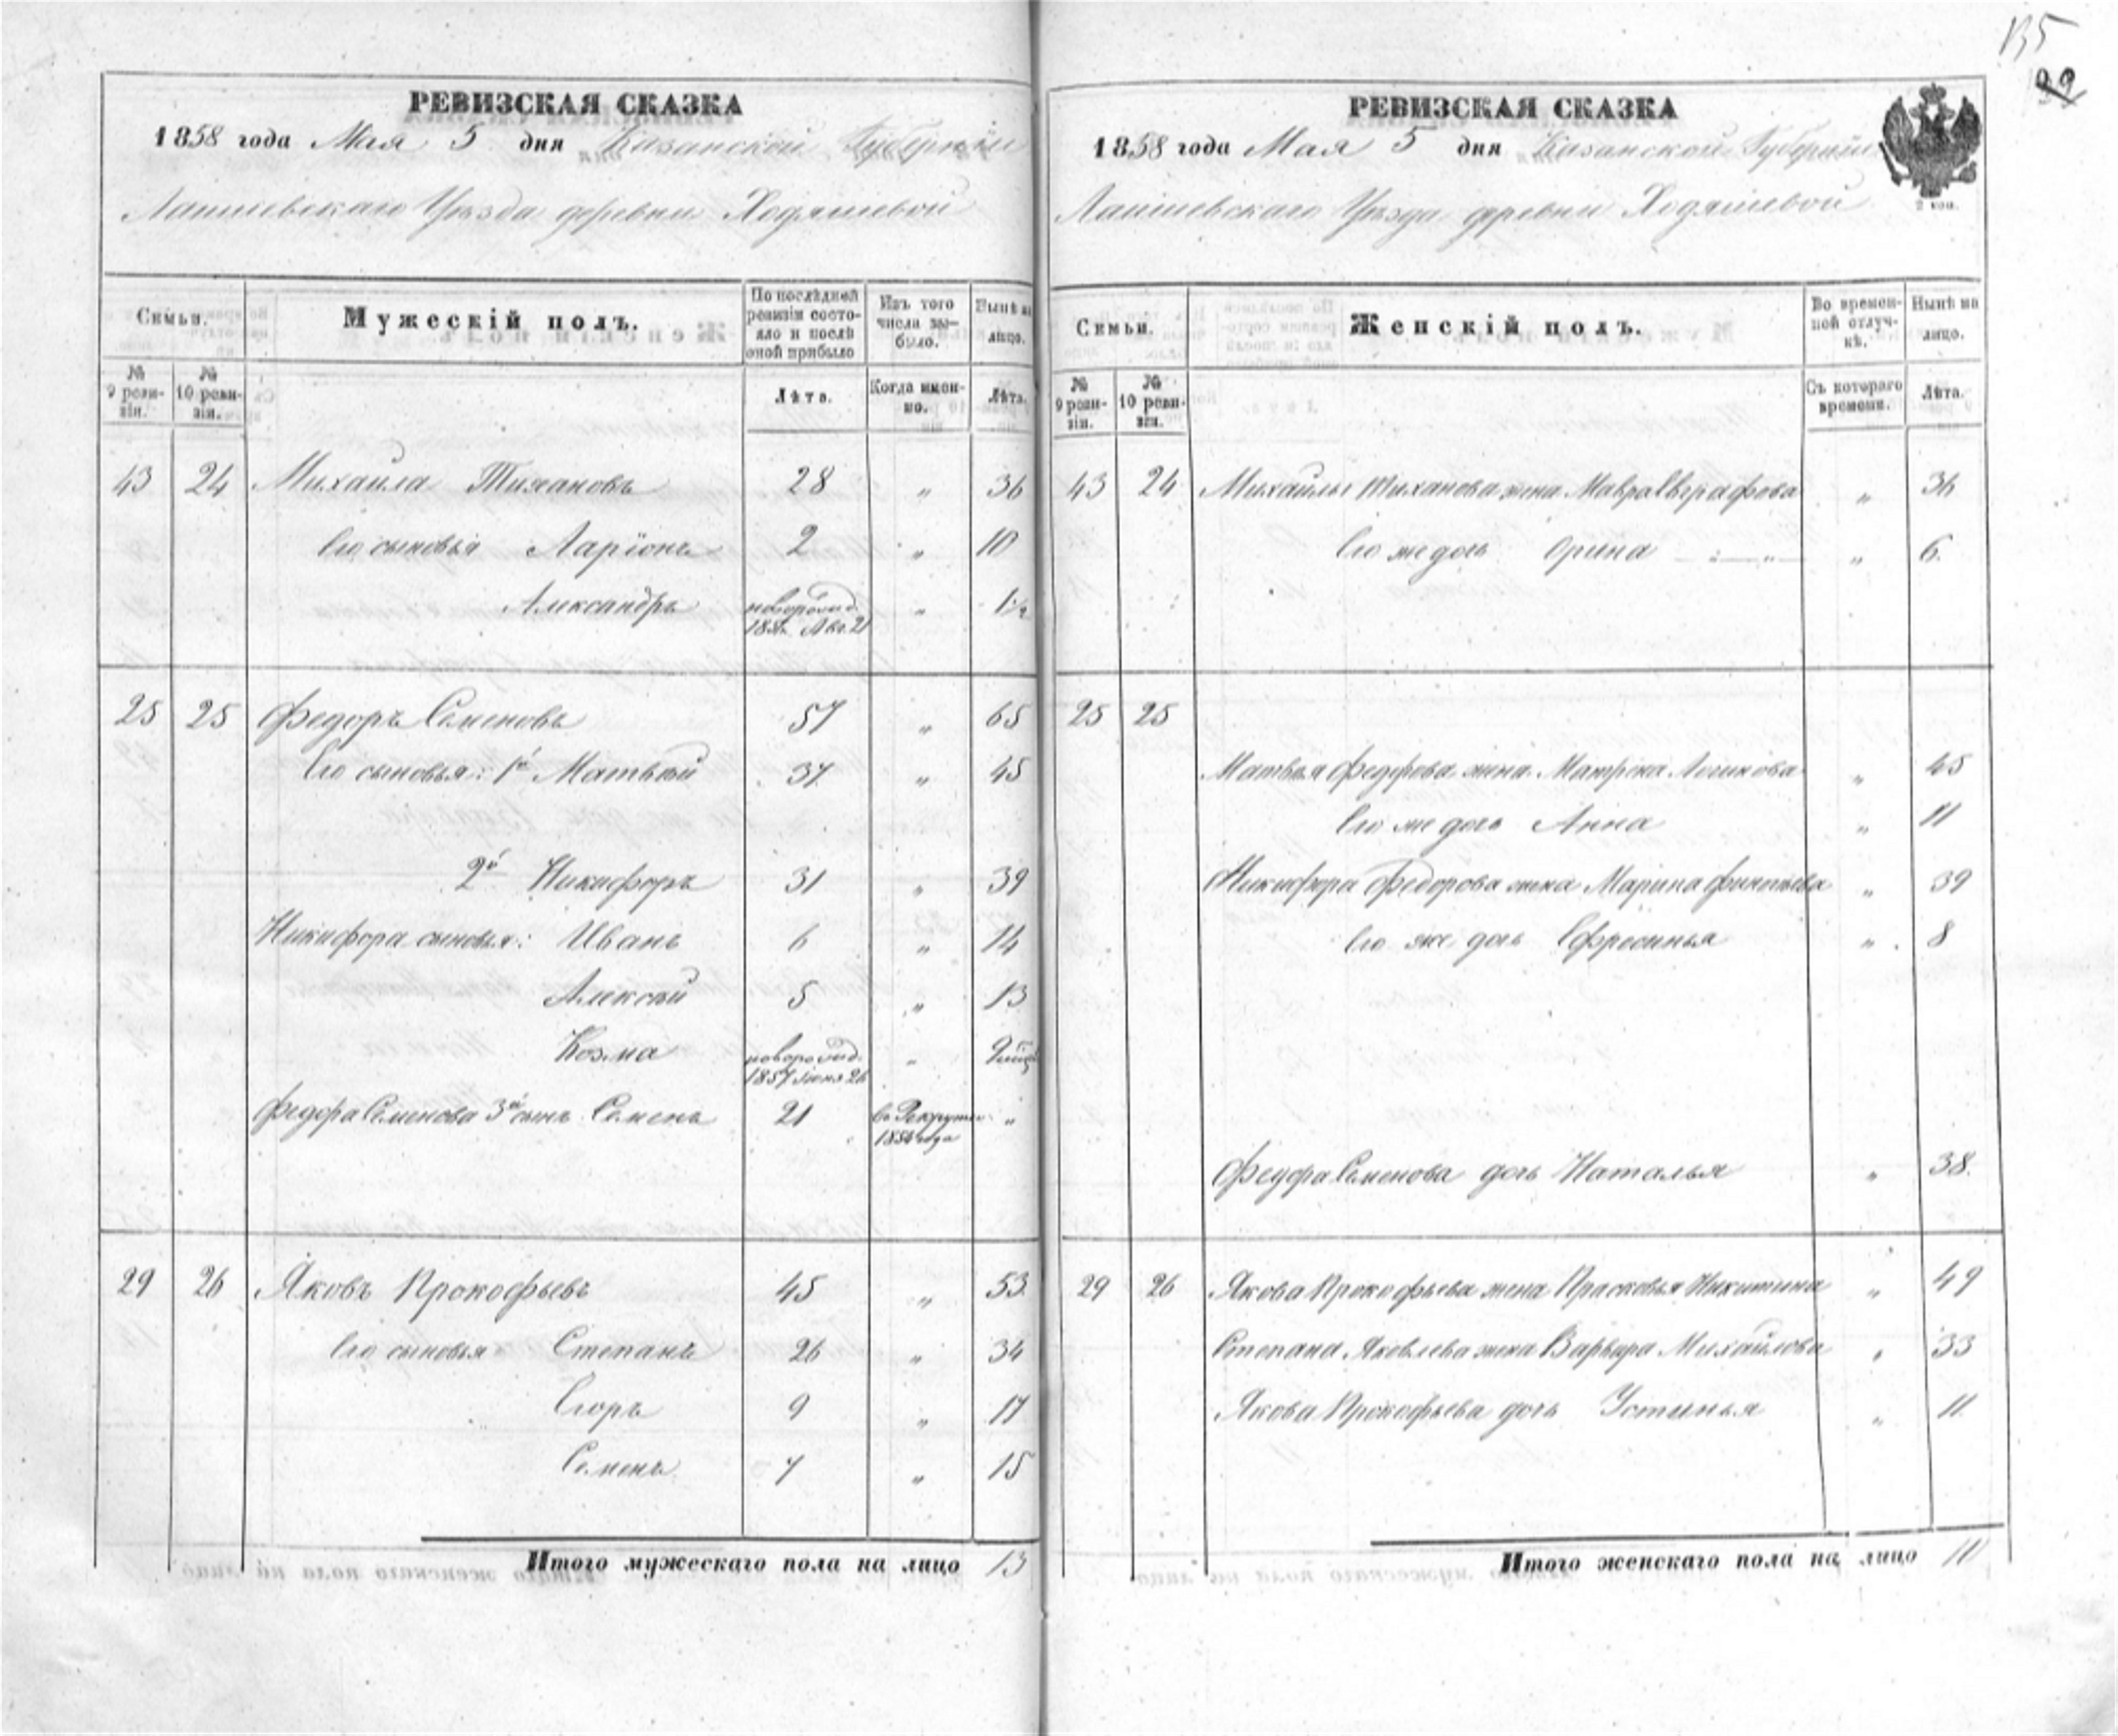 135
99
РЕВИЗСКАЯ СКАЗКА
1858 года Мая 5 дня Казанской Губерніи
Лаишевскаго Уѣзда деревни Ходяшевой
Семьи.
Мужескій полъ.
По послѣдней ревизіи состояло и послѣ оной прибыло
Изъ того числа выбыло.
Нынѣ на лицо.
№ 9 ревизіи.
№ 10 ревизіи.
Лѣта.
Когда именно.
Лѣта.
43 24 Михаила Тихановъ 28 " 36
Его сыновья Ларіонъ 2 " 10
Александръ новорожд. " 1½
Авг. 21
25 25 Федоръ Семеновъ 57 " 65
Его сыновья: 1й Матвѣй 37 " 45
2й Никифоръ 31 " 39
Никифора сыновья: Иванъ 6 " 14
Алексѣй 5 " 13
Козма новорожд. "
1857 Іюня 26
Федора Семенова 3й сынъ Семенъ 21 въ Рекруты "
года
29 26 Яковъ Прокофьевъ 45 " 53
Его сыновья Степанъ 26 " 34
Егоръ 9 " 17
Семенъ 7 " 15
Итого мужескаго пола на лицо 13
РЕВИЗСКАЯ СКАЗКА
1858 года Мая 5 дня Казанской Губерніи
2 коп.
Лаишевскаго Уѣзда деревни Ходяшевой
Семьи.
Женскій полъ.
Во временной отлучкѣ.
Нынѣ на лицо.
№ 9 ревизіи.
№ 10 ревизіи.
Съ котораго времени.
Лѣта.
43 24 Михайлы Тиханова жена Мавра Евграфова " 36
Его же дочь Орина " 6.
25 25
Матвѣя Федорова жена Матрена Логинова " 45
Его же дочь Анна " 11
Никифора Федорова жена Марина " 39
Его же дочь Ефросинья " 8
Федора Семенова дочь Наталья " 38.
29 26 Якова Прокофьева жена Прасковья Никитина " 49
Степана Яковлева жена Варвара Михайлова " 33
Якова Прокофьева дочь Устинья " 11.
Итого женскаго пола на лицо 10